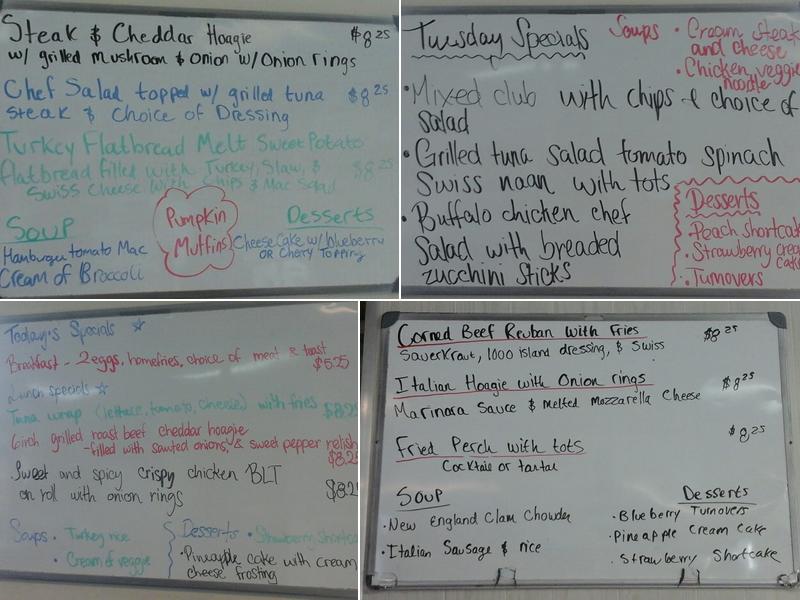 Steak & Cheddar Hoagie $8.25
w/ grilled Mushroom & Onion w/Onion rings
Chef Salad topped w/ grilled tuna $8.25
Steak & Choice of Dressing
Turkey Flatbread Melt Sweet Potato
flatbread filled with Turkey, Slaw, & $8.25
Swiss Cheese with Chips & Mac Salad
Pumpkin
Muffins
Soup
Hamburger tomato Mac
Cream of Broccoli
Desserts
Cheese Cake w/ blueberry
OR Cherry Topping
Tuesday Specials
Soups • Cream Steak
and cheese
• Chicken veggie
noodle
• Mixed club with chips & choice of
salad
• Grilled tuna salad tomato spinach
Swiss naan with tots
• Buffalo chicken chef
Salad with breaded
zucchini sticks
Desserts
• Peach Shortcak
• Strawberry crea
cak
• Turnovers
Today's Specials
Breakfast - 2 eggs, homefries, choice of meat & toast
$5.25
Lunch specials
Tuna wrap (lettuce, tomato, cheese) with fries $8.25
6 inch grilled roast beef cheddar hoagie
-filled with sauted onions, & sweet pepper relish
$8.25
Sweet and spicy crispy chicken BLT
on roll with onion rings $8.2
Soups • Turkey rice
• Cream of veggie
Desserts • Strawberry Shortca
• Pineapple cake with cream
cheese frosting
Corned Beef Reuban with Fries $8.25
Sauerkraut, 1000 island dressing, & Swiss
Italian Hoagie with Onion rings $8.25
Marinara Sauce & melted Mozzarella Cheese
Fried Perch with tots $8.25
Cocktail or tartar
Soup
• New England Clam Chowder
• Italian Sausage & rice
Desserts
• Blueberry Turnovers
• Pineapple Cream Cake
• Strawberry Shortcake